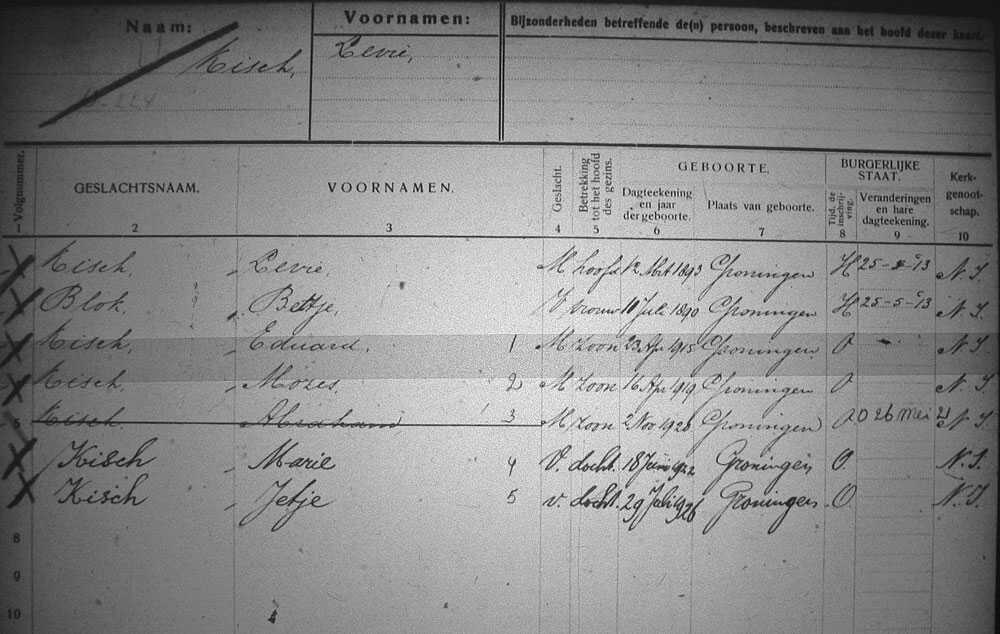 Naam:
Voornamen:
Bijzonderheden betreffende de(n) persoon, beschreven aan het hoofd dezer kaart.
Kisch, Levie,
Volgnummer. GESLACHTSNAAM. VOORNAMEN. Geslacht. Betrekking tot het hoofd des gezins. GEBOORTE. Dagteekening en jaar der geboorte. Plaats van geboorte. BURGERLIJKE STAAT. Tijd. de inschrijving. Veranderingen en hare dagteekening. Kerkgenootschap.
1 2 3 4 5 6 7 8 9 10
Kisch, Levie, M hoofd 12 Mrt 1893 Groningen H 25-5-'13 N.I.
Blok, Betje, V vrouw 10 Juli 1890 Groningen H 25-5-'13 N.I.
Kisch, Eduard, 1 M zoon 23 Apr 1915 Groningen O N.I.
Kisch, Mozes 2 M zoon 16 Apr 1919 Groningen O N.I.
5 Kisch Abraham 3 M zoon 2 Nov 1920 Groningen O 26 Mei 21 N.I.
Kisch Marie 4 V. docht. 18 Juni 1922 Groningen O. N.I.
Kisch Jetje 5 v. docht. 29 Juli 1926 Groningen O N.I.
8
9
10